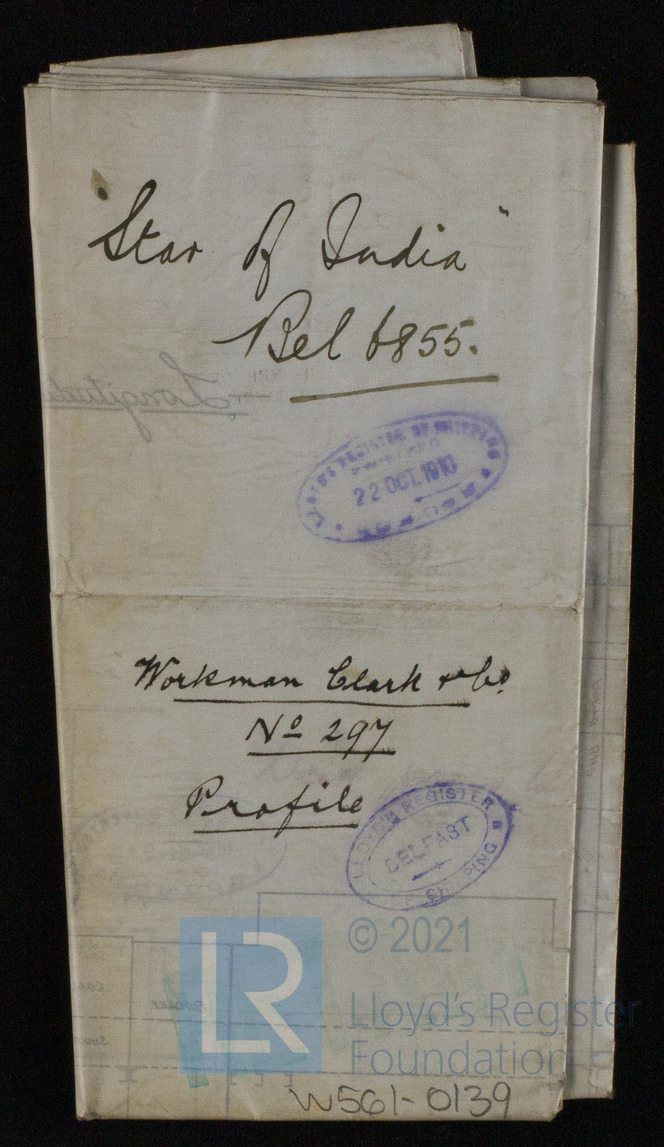 "Star of India"
Bel 6855.
LLOYD'S REGISTER OF SHIPPING
22 OCT. 1910
Workman Clark & Co
No 297
Profile
LLOYD'S REGISTER
BELFAST
SHIPPING
LR
© 2021
Lloyd's Register
Foundation
W561-0139